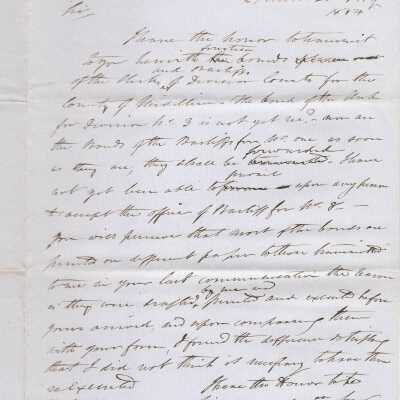 Sir
I have the honor to transmit
to you herewith the bonds
of the Clerks and Bailiffs of Division Courts for the
County of Middlesex – the bond of the Clerk
for Division No. 3 is not yet recd – nor are
the Bonds of the Bailiffs for No. one as soon
as they are, they shall be forwarded. I have
not yet been able to prevail upon any person
to accept the office of Bailiff for No. 8 –
you will perceive that most of the bonds are
printed on different paper to those transmitted
to me in your last communication the reason
is they were drafted by me, and printed and executed before
yours arrived, and upon comparing them
with your form, I found the difference so trifling
that I did not think it necessary to have them
re executed
I have the Honor to be